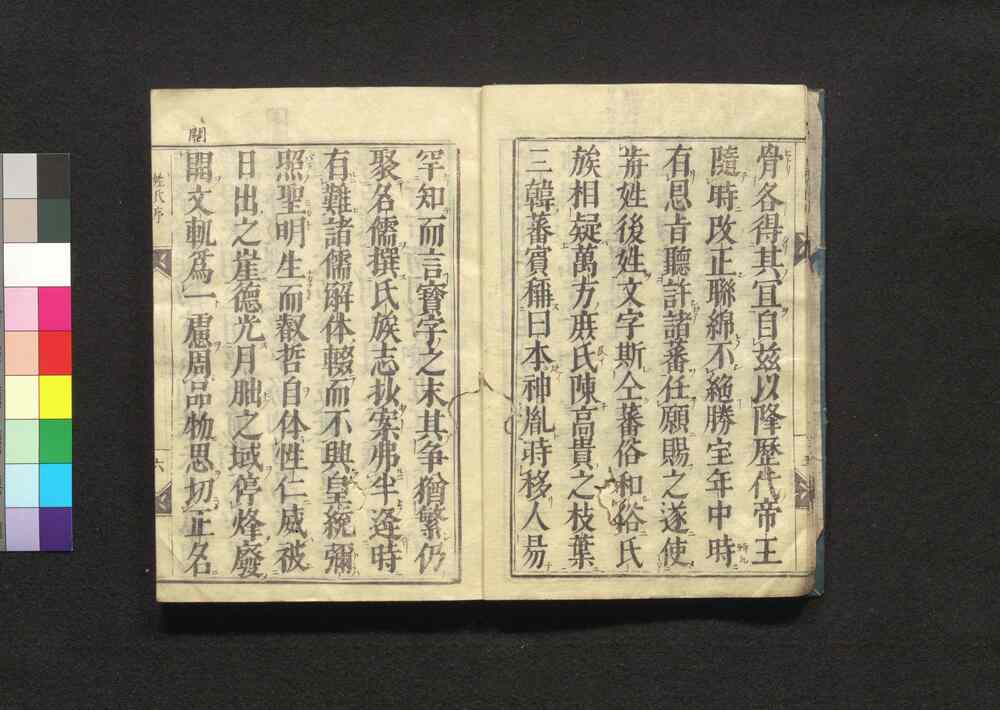 骨各得其宜自茲以降歷代帝王
隨時改正聯綿不絶勝宝年中時
有恩旨聽許諸蕃任願賜之遂使
前姓後姓文字斯仝蕃俗和俗氏
族相疑萬方庶氏陳高貴之枝葉
三韓蕃賓稱日本神胤時移人昜
罕知而言寶字之末其争猶繁仍
聚名儒撰氏族志抄案弗半逢時
有難諸儒解体輟而不興皇統彌
照聖明生而叡哲自体性仁威被
日出之崖德光月朏之域停烽廢
開文軌爲一慮周品物思切正名
關
姓氏序
六